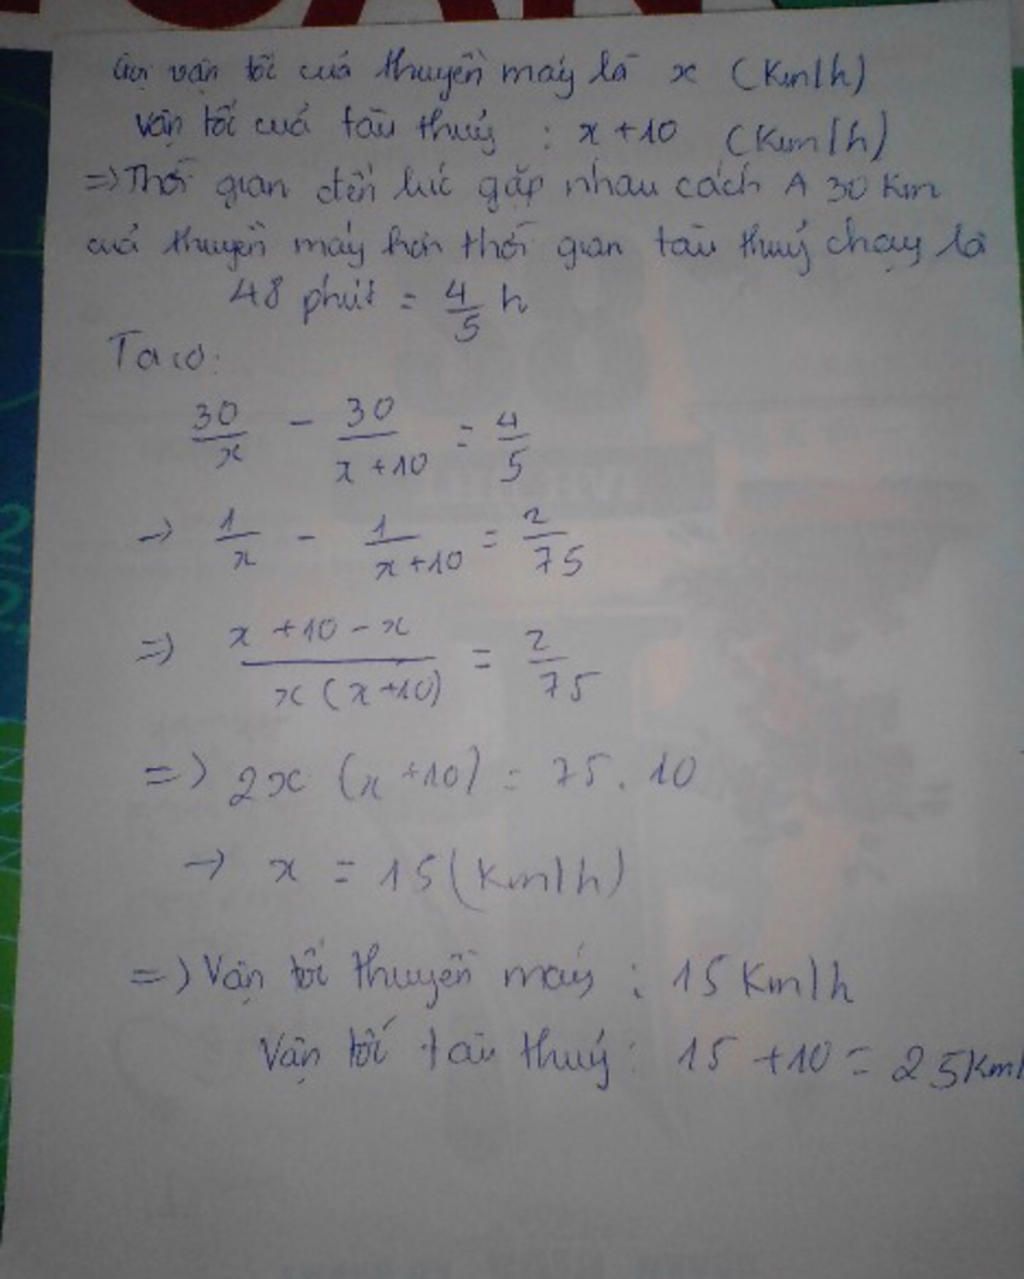 Gọi vận tốc của thuyền máy là x (Km/h)
Vận tốc của tàu thuỷ : x+10 (Km/h)
=> Thời gian đến lúc gặp nhau cách A 30 Km
của thuyền máy hơn thời gian tàu thuỷ chạy là
48 phút = 4/5 h
Ta có:
30/x - 30/(x+10) = 4/5
-> 1/x - 1/(x+10) = 2/75
=> (x+10-x)/(x(x+10)) = 2/75
=> 2x (x+10) = 75.10
-> x = 15 (Km/h)
=> Vận tốc thuyền máy : 15 Km/h
Vận tốc tàu thuỷ : 15 +10 = 25Km/